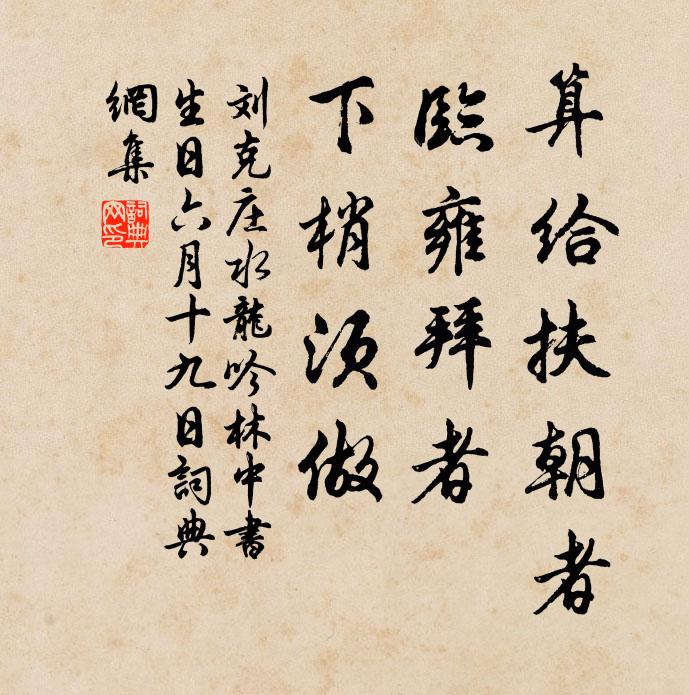 算给扶朝者
临雍拜者
下梢须做
刘克庄水龍吟林中書
生日六月十九日詞典
網集
詞典
網印